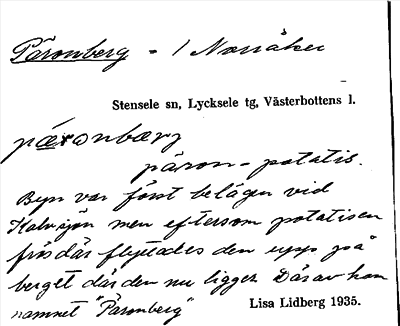 Päronberg - 1 Norråker
Stensele sn, Lycksele tg, Västerbottens l.
pæronbærg
päron = potatis.
Byn var först belägen vid
Kalvsjön men eftersom potatisen
frös där flyttades den upp på
berget där den nu ligger. Därav kom
namnet "Päronberg"
Lisa Lidberg 1935.